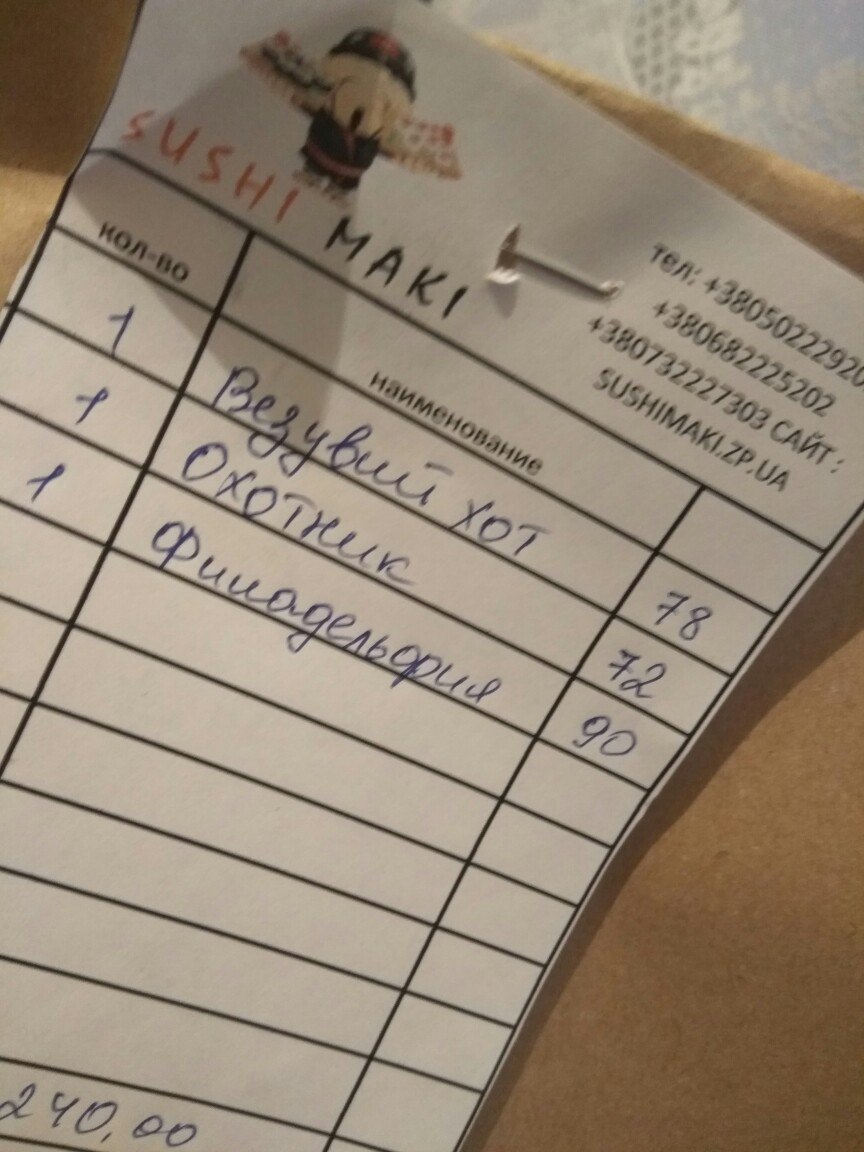 SUSHI MAKI
тел: +3805022292
+380682225202
+380732227303 САЙТ :
SUSHIMAKI.ZP.UA
кол-во наименование
1 Везувий хот 78
1 Охотник 72
1 Филадельфия 90
240,00